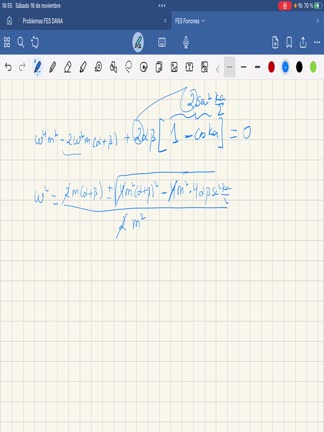 18:55 Sábado 16 de noviembre 70 %
Problemas FES DANA FES Fonones
2sen² ka/2
ω⁴m² - 2ω²m(α+β) + 2αβ[1 - coska] = 0
ω² = 2m(α+β) ± √(4m²(α+β)² - 4m²·4αβse²ka/2) / 2m²